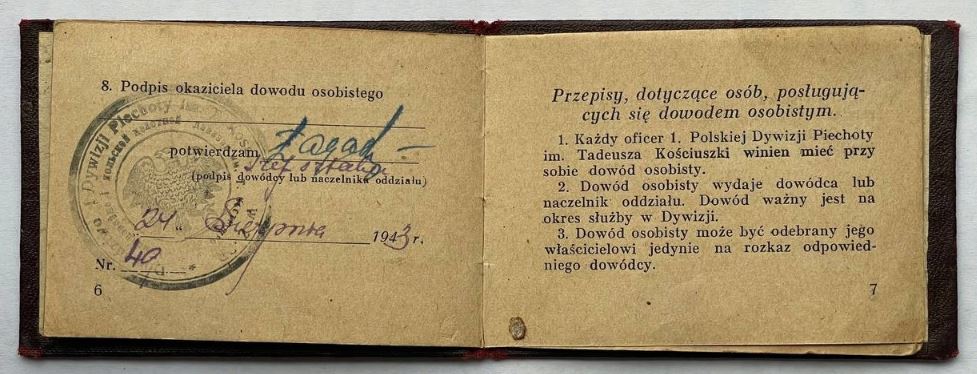 8. Podpis okaziciela dowodu osobistego
potwierdzam
szef sztabu
(podpis dowódcy lub naczelnika oddziału)
„24“ Sierpnia 1943 r.
Nr. 40
6
Dywizji Piechoty
Przepisy, dotyczące osób, posługują-
cych się dowodem osobistym.
1. Każdy oficer 1. Polskiej Dywizji Piechoty
im. Tadeusza Kościuszki winien mieć przy
sobie dowód osobisty.
2. Dowód osobisty wydaje dowódca lub
naczelnik oddziału. Dowód ważny jest na
okres służby w Dywizji.
3. Dowód osobisty może być odebrany jego
właścicielowi jedynie na rozkaz odpowied-
niego dowódcy.
7